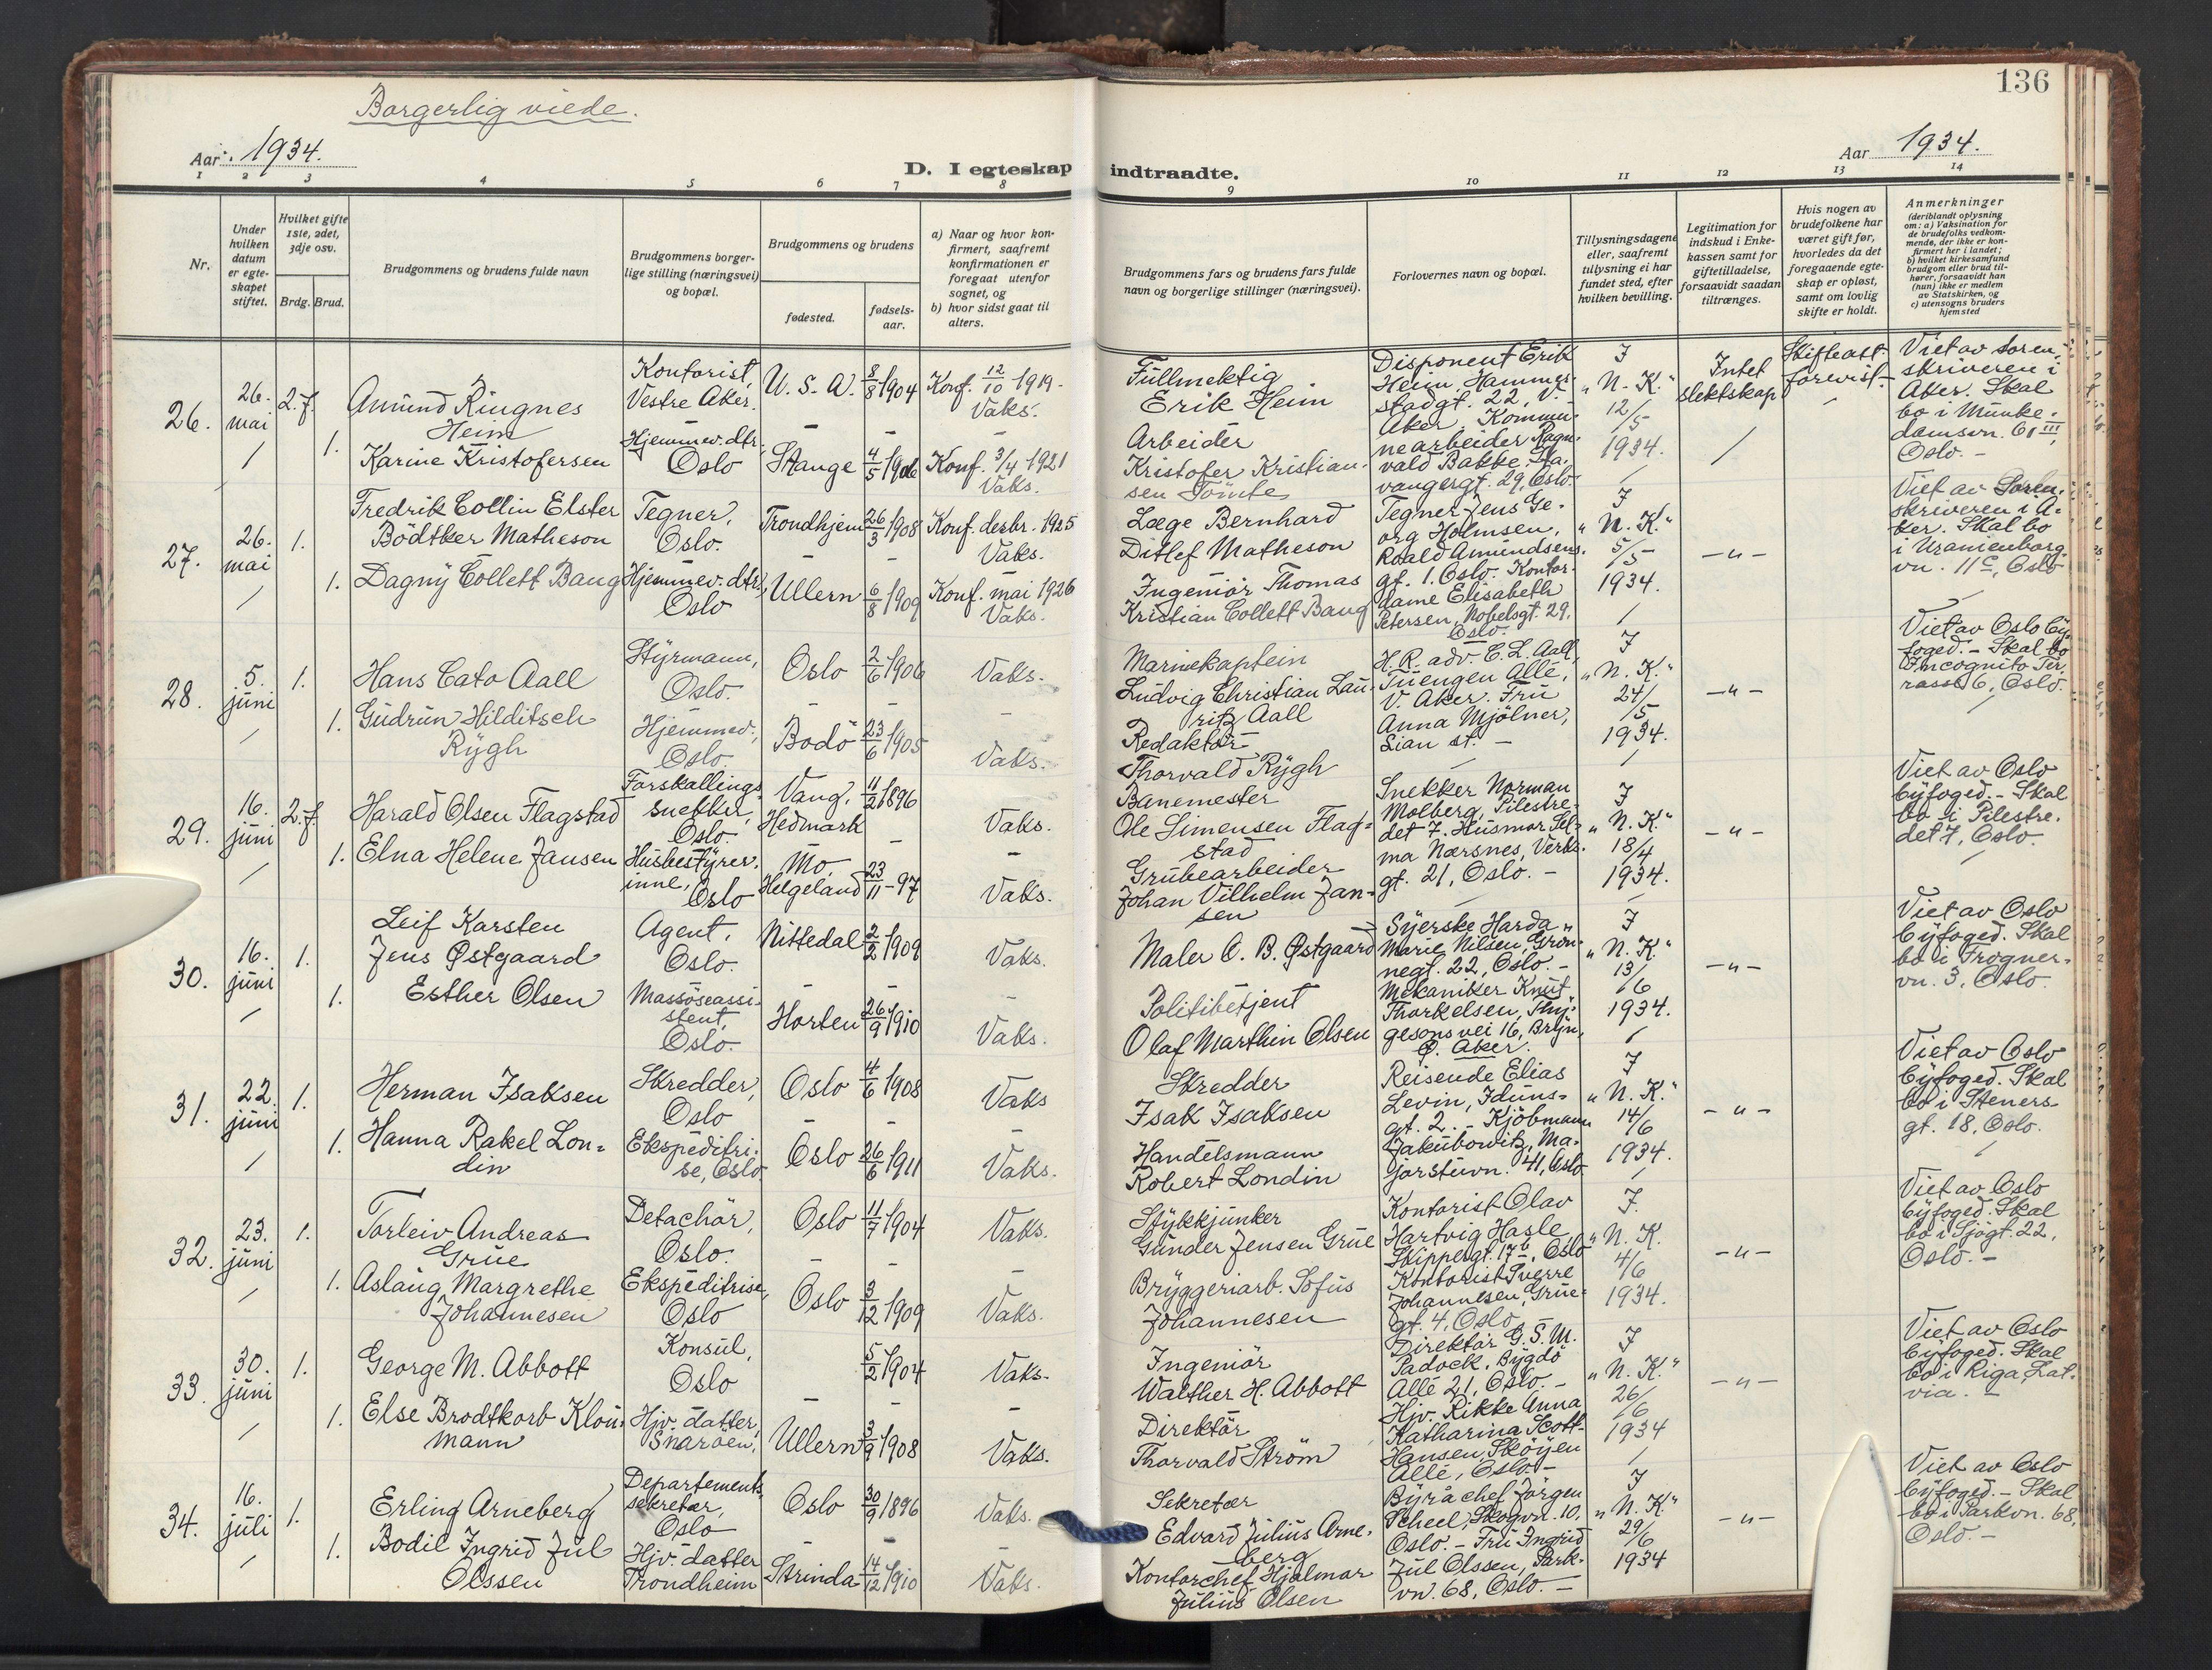 136
Borgerlig viede.
Aar 1934.
Aar 1934.
D. I egteskap indtraadte.
1 2 3 4 5 6 7 8 9 10 11 12 13 14
Nr.
Under
hvilken
datum
er egte-
skapet
stiftet.
Hvilket gifte
1ste, 2det,
3dje osv.
Brdg. Brud.
Brudgommens og brudens fulde navn
Brudgommens borger-
lige stilling (næringsvei)
og bopæl.
Brudgommens og brudens
fødested.
fødsels-
aar.
a) Naar og hvor kon-
firmert, saafremt
konfirmationen er
foregaat utenfor
sognet, og
b) hvor sidst gaat til
alters.
Brudgommens fars og brudens fars fulde
navn og borgerlige stillinger (næringsvei).
Forlovernes navn og bopæl.
Tillysningsdagene
eller, saafremt
tillysning ei har
fundet sted, efter
hvilken bevilling.
Legitimation for
indskud i Enke-
kassen samt for
giftetilladelse,
forsaavidt saadan
tiltrænges.
Hvis nogen av
brudefolkene har
været gift før,
hvorledes da det
foregaaende egte-
skap er opløst,
samt om lovlig
skifte er holdt.
Anmerkninger
(deriblandt oplysning
om: a) Vaksination for
de brudefolks vedkom-
mende, der ikke er kon-
firmert her i landet;
b) hvilket kirkesamfund
brudgom eller brud til-
hører, forsaavidt han
(hun) ikke er medlem
av Statskirken, og
c) utensogns bruders
hjemsted
26.
26.
mai
2. f.
1.
Amund Ringnes
Heim
Karine Kristofersen
Kontorist,
Vestre Aker.
Hjemmev. dtr.,
Oslo
U. S. A.
Stange
8/8 1904
4/5 1906
Konf. 12/10 1919.
Vaks.
Konf. 3/4 1921
Vaks.
Fullmektig
Erik Heim
Arbeider
Kristofer Kristian-
sen Tömte
Disponent Erik
Heim, Hammer-
stadgt. 22, V.
Aker. Kommu-
nearbeider Ragn-
vald Bakke, Sta-
vangergt. 29, Oslo.
I
"N. K."
12/5
1934.
Intet
slektskap
Skifteatt.
forevist.
Viet av soren-
skriveren i
Aker. Skal
bo i Munke-
damsvn. 61 III,
Oslo. -
27.
26.
mai
1.
1.
Fredrik Collin Elster
Bödtker Matheson
Dagny Collett Baug
Tegner,
Oslo.
Hjemmev. dtr.,
Oslo
Trondhjem
Ullern
26/3 1908
6/8 1909
Konf. desbr. 1925
Vaks.
Konf. mai 1926
Vaks.
Læge Bernhard
Ditlef Matheson
Ingeniör Thomas
Kristian Collett Baug
Tegner Jens Ge-
org Holmsen,
Roald Amundsens-
gt. 1. Oslo. Kontor-
dame Elisabeth
Petersen, Nobelsgt. 29,
Oslo.
I
"N. K."
5/5
1934.
- " -
Viet av Soren-
skriveren i A-
ker. Skal bo
i Uranienborg-
vn. 11 c, Oslo
28.
5.
juni
1.
1.
Hans Cato Aall
Gudrun Hilditsch
Rygh
Styrmann,
Oslo.
Hjemmev.,
Oslo.
Oslo
Bodö
2/6 1906
23/6 1905
Vaks.
Vaks.
Marinekaptein
Ludvig Christian Lau-
ritz Aall
Redaktör
Thorvald Rygh
H. R. adv. C. L. Aall,
Tuengen Allé,
V. Aker. Fru
Anna Mjölner,
Lian st. -
I
"N. K."
24/5
1934.
- " -
Viet av Oslo By-
foged. - Skal bo
Incognito Ter-
rasse 6, Oslo.
29.
16.
juni
2. f.
1.
Harald Olsen Flagstad
Elna Helene Jansen
Forskallings-
snekker,
Oslo.
Husbestyrer-
inne,
Oslo
Vang,
Hedmark
Mo,
Helgeland
11/2 1896
23/11 - 97
Vaks.
Vaks.
Banemester
Ole Simensen Flag-
stad
Grubearbeider
Johan Vilhelm Jan-
sen
Snekker Norman
Molberg, Pilestre-
det 7. Husmor Sel-
ma Nærsnes, Verks-
gt. 21, Oslo. -
I
"N. K."
18/4
1934.
- " -
Viet av Oslo
Byfoged. - Skal
bo i Pilestre-
det 7, Oslo.
30.
16.
juni
1.
1.
Leif Karsten
Jens Østgaard
Esther Olsen
Agent,
Oslo.
Massöseassi-
stent,
Oslo.
Nittedal
Horten
2/2 1909
26/9 1910
Vaks.
Vaks.
Maler O. B. Østgaard
Politibetjent
Olaf Marthin Olsen
Syerske Harda
Marie Nilsen, Grön-
negt. 22, Oslo. -
Mekaniker Knut
Thorkelsen,
gesons vei 16, Bryn,
Ø. Aker.
I
"N. K."
13/6
1934.
- " -
Viet av Oslo
Byfoged. Skal
bo i Frogner-
vn. 3, Oslo.
31.
22.
juni
1.
1.
Herman Isaksen
Hanna Rakel Lon-
din
Skredder,
Oslo
Ekspeditri-
se, Oslo.
Oslo
Oslo
4/6 1908
26/6 1911
Vaks
Vaks.
Skredder
Isak Isaksen
Handelsmann
Robert Londin
Reisende Elias
Levin, Iduns-
gt. 2. - Kjöbmann
Jakubowitz, Ma-
jorstuvn. 41, Oslo
I
"N. K."
14/6
1934.
- " -
Viet av Oslo
Byfoged. Skal
bo i Steners-
gt. 18, Oslo.
32.
23.
juni
1.
1.
Torleiv Andreas
Grue
Aslaug Margrethe
Johannesen
Detachör,
Oslo.
Ekspeditrise,
Oslo
Oslo
Oslo
11/7 1904
3/12 1909
Vaks.
Vaks.
Stykkjunker
Gunder Jensen Grue
Bryggeriarb. Sofus
Johannesen
Kontorist Olav
Hartvig Hasle
Skippergt. 17 b, Oslo
Kontorist Sverre
Johannesen, Grue-
gt. 4, Oslo
I.
"N. K.
4/6
1934.
- " -
Viet av Oslo
Byfoged. Skal
bo i Sjögt. 22,
Oslo. -
33.
30.
juni
1.
1.
George M. Abbott
Else Brodtkorb Klou-
mann
Konsul,
Oslo
Hjv. datter,
Snaröen,
Ullern
5/2 1904
3/9 1908
Vaks.
Vaks.
Ingeniör
Walther H. Abbott
Direktör
Thorvald Ström
Direktör G. S. M.
Padock, Bygdö
Allé 21, Oslo. -
Hjv. Rikke Anna
Katharina Scott-
Hansen, Sköyen
Allé, Oslo. -
I
"N. K."
26/6
1934
- " -
Viet av Oslo
Byfoged. Skal
bo i Riga, Lat-
via. -
34.
16.
juli
1.
1.
Erling Arneberg
Bodil Ingrid Jul
Olssen
Departements-
sekretær,
Oslo
Hjv. datter
Trondheim
Oslo
Strinda
30/9 1896
14/12 1910
Vaks.
Vaks.
Sekretær
Edvard Julius Arne-
berg
Kontorchef Hjalmar
Julius Olsen
Byråchef Jörgen
Scheel, Skogvn. 10,
Oslo. - Fru Ingrid
Jul Olssen, Park-
vn. 68, Oslo. -
I
"N. K"
29/6
1934
- " -
Viet av Oslo
Byfoged. - Skal
bo i Parkvn. 68,
Oslo. -